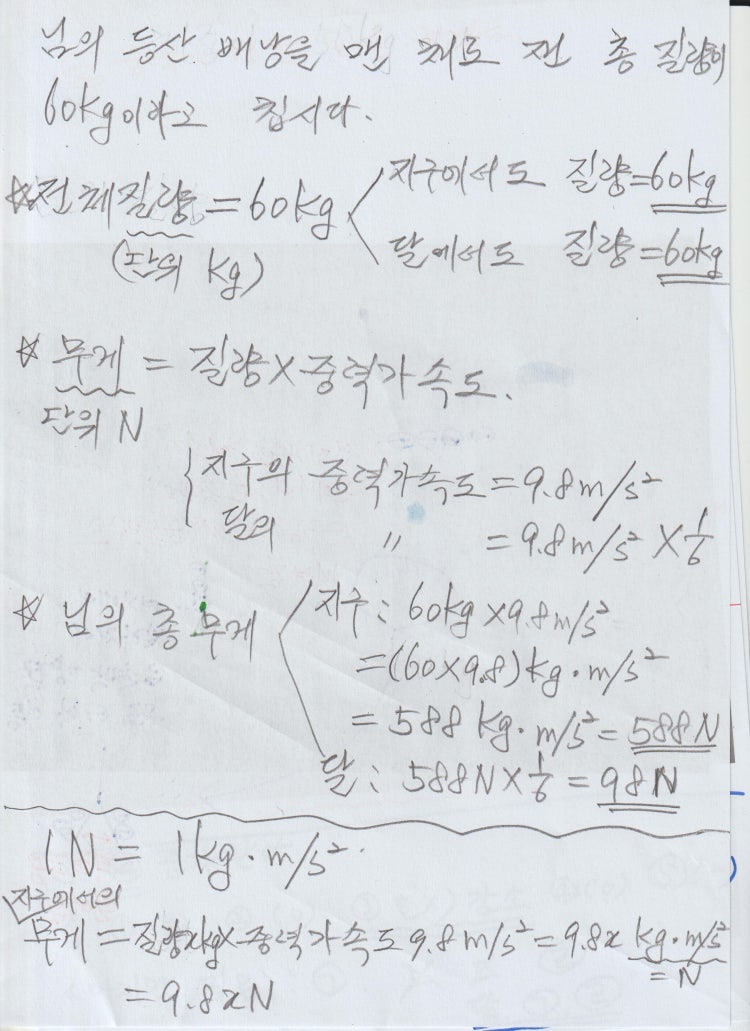 님의 등산 배낭을 맨 채로 전 총 질량이
60kg이라고 칩시다.
☆전체질량 = 60kg
지구에서도 질량=60kg
달에서도 질량=60kg
(단위 kg)
☆ 무게 = 질량 × 중력가속도.
단위 N
지구의 중력가속도 = 9.8m/s²
달의 〃 = 9.8m/s² × 1/6
☆ 님의 총 무게
지구: 60kg × 9.8m/s²
= (60×9.8)kg·m/s²
= 588 kg·m/s² = 588N
달: 588N × 1/6 = 98N
1N = 1kg·m/s²
지구에서의
무게 = 질량xkg × 중력가속도 9.8m/s² = 9.8x kg·m/s²
= N
= 9.8xN